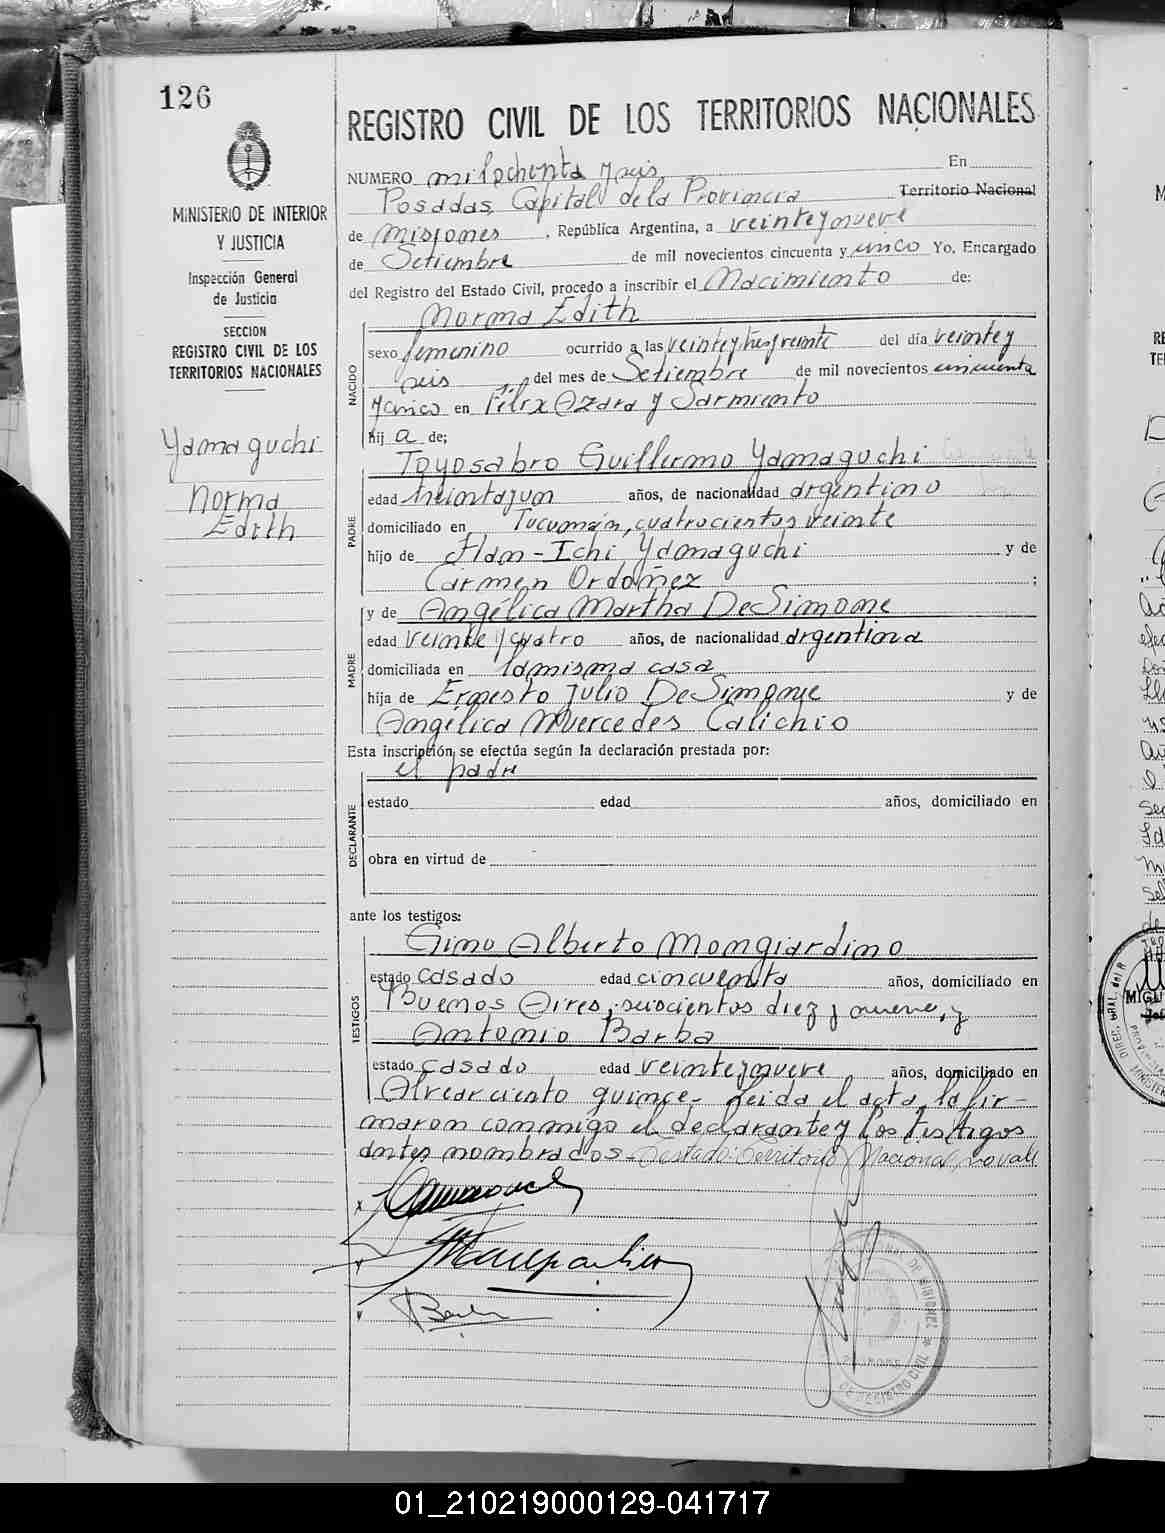 126
REGISTRO CIVIL DE LOS TERRITORIOS NACIONALES
MINISTERIO DE INTERIOR
Y JUSTICIA
Inspección General
de Justicia
SECCION
REGISTRO CIVIL DE LOS
TERRITORIOS NACIONALES
Yamaguchi
Norma
Edith
NUMERO mil ochenta y seis En
Posadas, Capital de la Provincia Territorio Nacional
de Misiones, República Argentina, a veinte y nueve
de Setiembre de mil novecientos cincuenta y cinco Yo, Encargado
del Registro del Estado Civil, procedo a inscribir el Nacimiento de:
Norma Edith
NACIDO
sexo femenino ocurrido a las veinte y tres y veinte del día veinte y
seis del mes de Setiembre de mil novecientos cincuenta
y cinco en Félix Azara y Sarmiento
hij a de;
PADRE
Toyosabro Guillermo Yamaguchi
edad treinta y un años, de nacionalidad argentino
domiciliado en Tucumán, cuatrocientos veinte
hijo de Han-Ichi Yamaguchi y de
Carmen Ordoñez ;
MADRE
y de Angélica Martha De Simone
edad veinte y cuatro años, de nacionalidad argentina
domiciliada en la misma casa
hija de Ernesto Julio De Simone y de
Angélica Mercedes Calichio
Esta inscripción se efectúa según la declaración prestada por:
el padre
DECLARANTE
estado edad años, domiciliado en
obra en virtud de
ante los testigos:
TESTIGOS
Gino Alberto Mongiardino
estado casado edad cincuenta años, domiciliado en
Buenos Aires, seiscientos diez y nueve, y
Antonio Barba
estado casado edad veinte y nueve años, domiciliado en
Alvear ciento quince.- Leida el acta, la fir-
maron conmigo el declarante y los testigos
antes nombrados.- Testado: Territorio Nacional, no vale
01_210219000129-041717